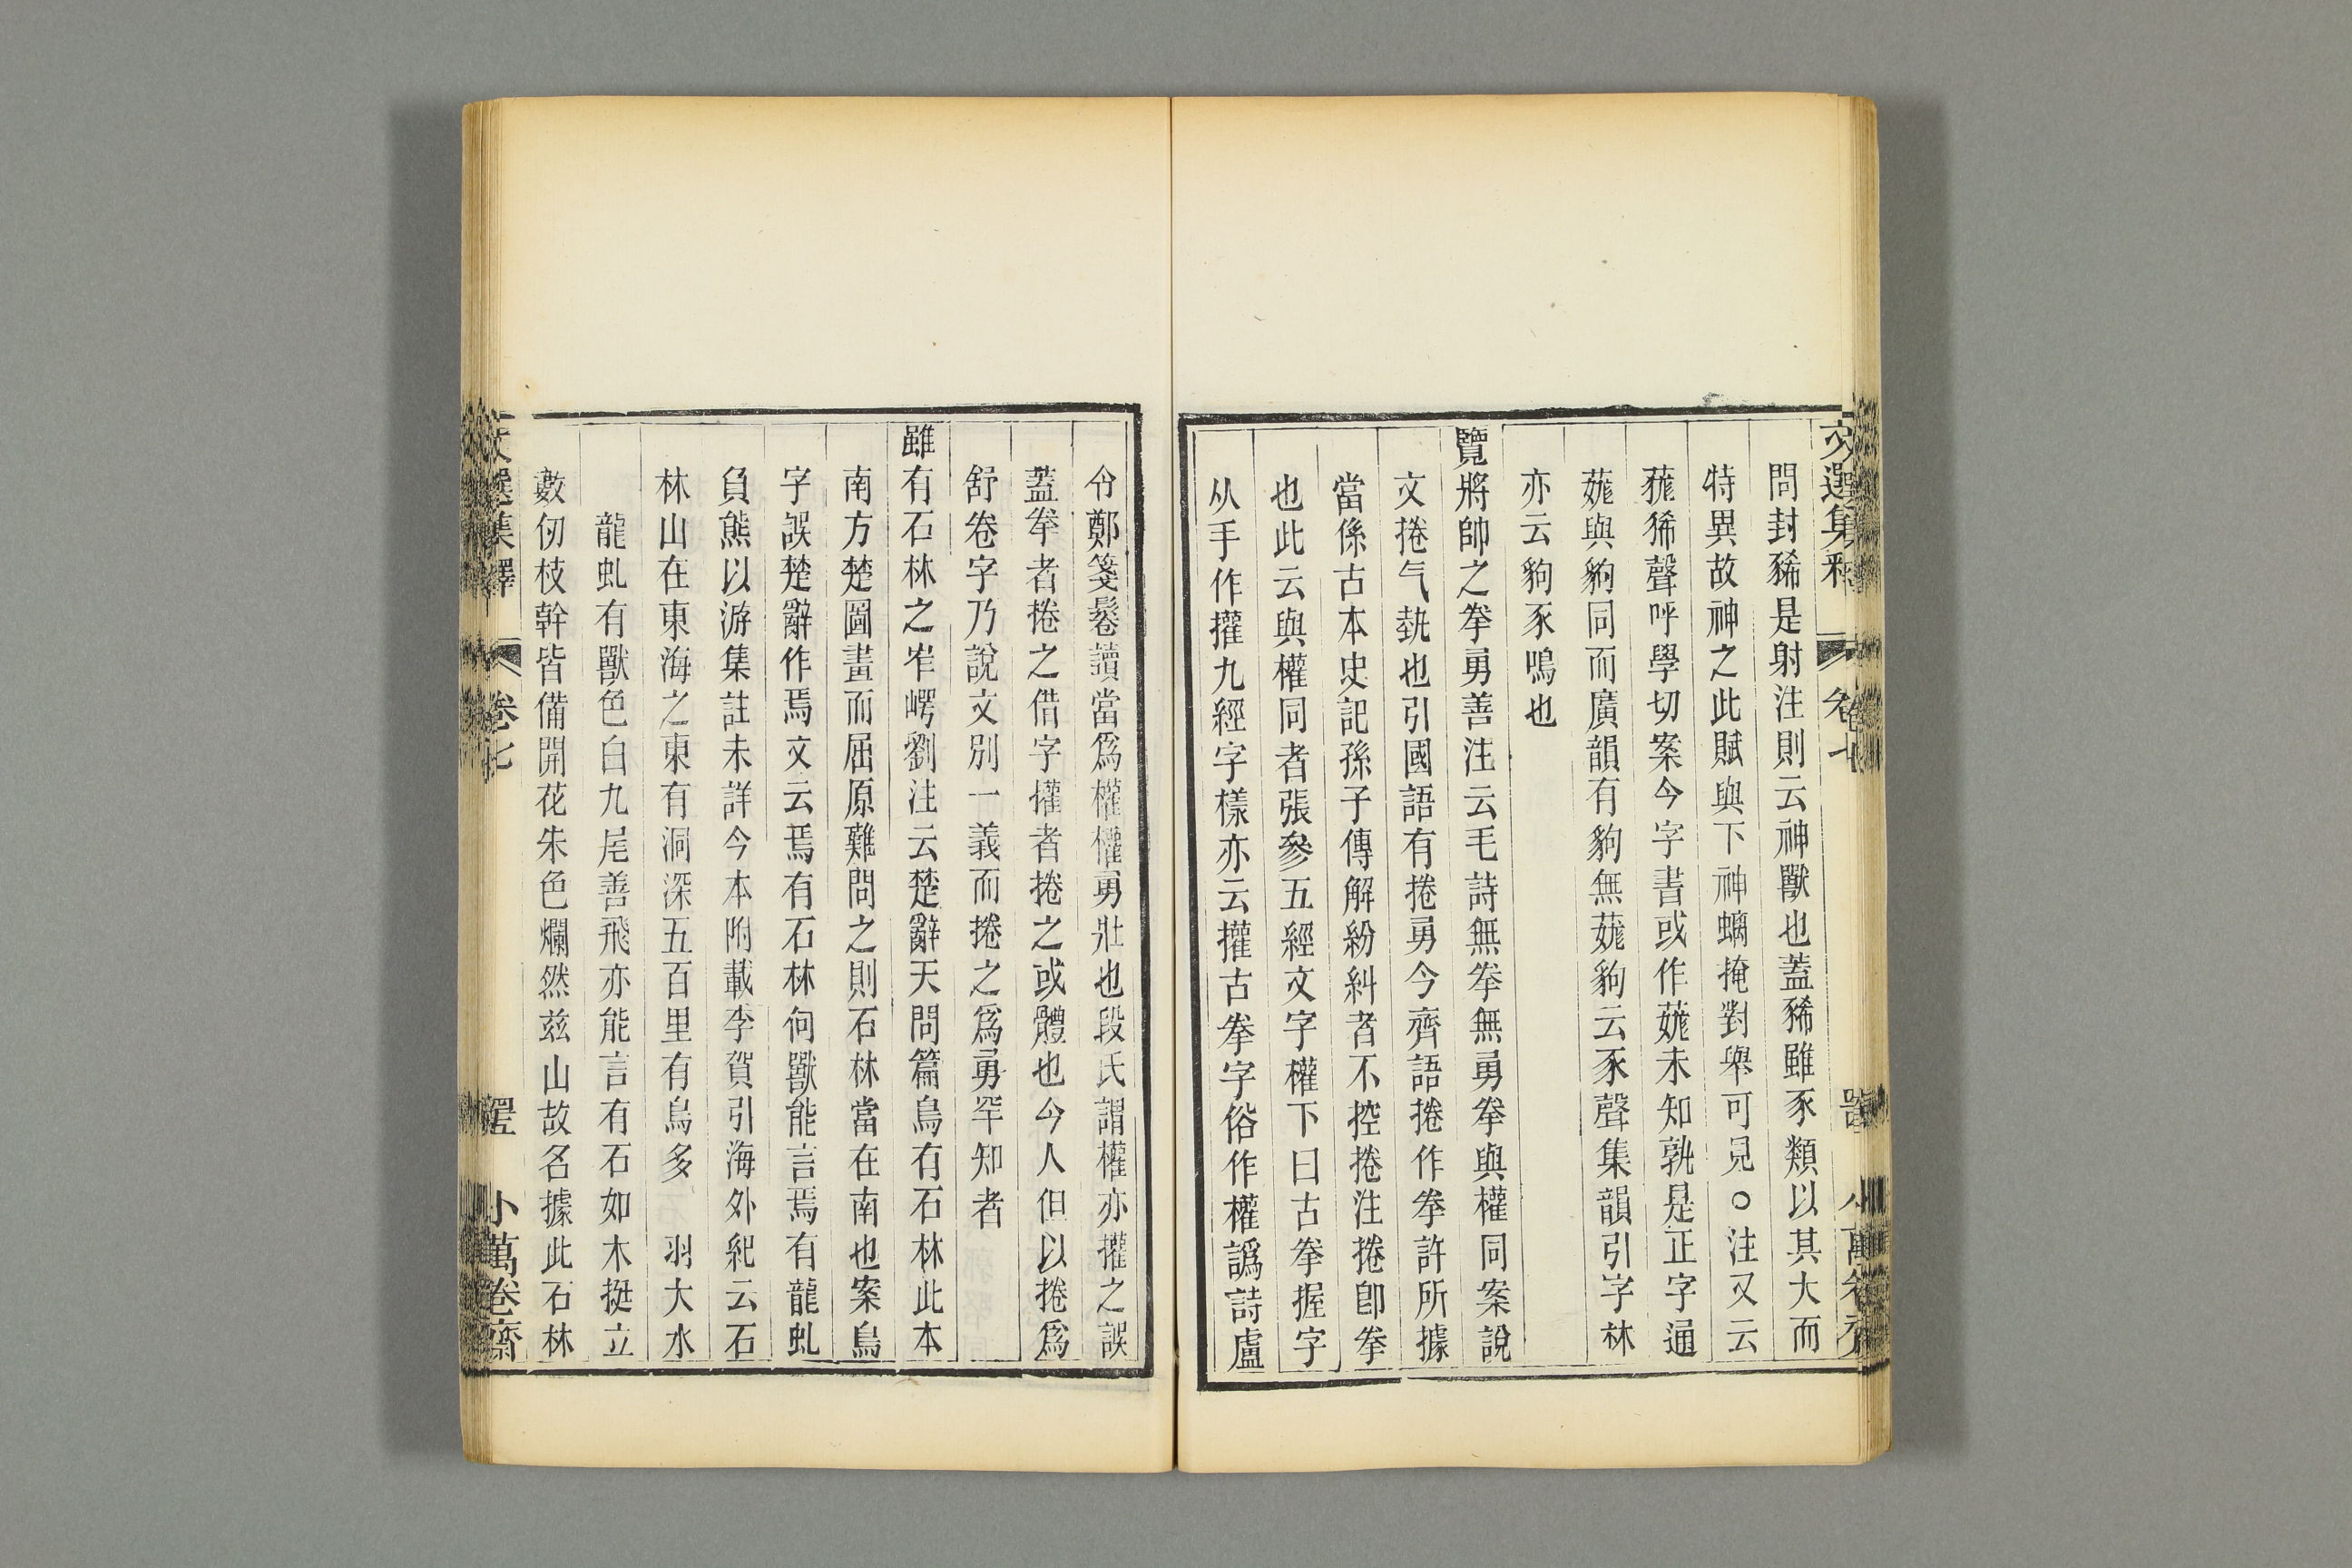 問封豨是射注則云神獸也蓋豨雖豕類以其大而
特異故神之此賦與下神螭掩對舉可見○注又云
豨聲呼學切案今字書或作䔳未知孰是正字通
䔳與豞同而廣韻有豞無䔳豞云豕聲集韻引字林
亦云豞豕鳴也
覽將帥之拳勇善注云毛詩無拳無勇拳與權同案說
文捲气埶也引國語有捲勇今齊語捲作拳許所據
當係古本史記孫子傳解紛糾者不控捲注捲卽拳
也此云與權同者張參五經文字權下曰古拳握字
从手作攉九經字樣亦云攉古拳字俗作權譌詩盧
令鄭箋鬈讀當爲權權勇壯也段氏謂權亦攉之誤
蓋拳者捲之借字攉者捲之或體也今人但以捲爲
舒卷字乃說文別一義而捲之爲勇罕知者
雖有石林之岝崿劉注云楚辭天問篇烏有石林此本
南方楚圖畫而屈原難問之則石林當在南也案烏
字誤楚辭作焉文云焉有石林何獸能言焉有龍虬
負熊以游集註未詳今本附載李賀引海外紀云石
林山在東海之東有洞深五百里有鳥多 羽大水
龍虬有獸色白九尾善飛亦能言有石如木挺立
數仞枝幹皆備開花朱色爛然茲山故名據此石林
文選集釋 卷七 小萬卷齋